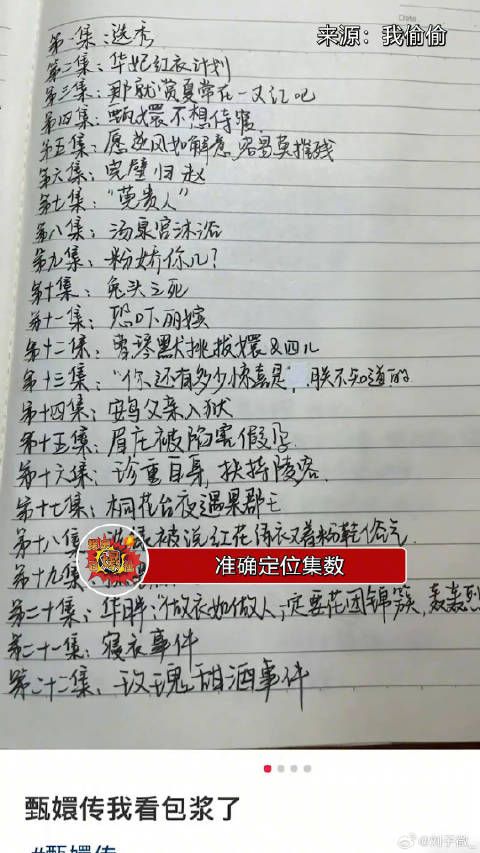 Date
来源：我偷偷
第一集：选秀
第二集：华妃红衣计划
第三集：那就赏夏常在一丈红吧
第四集：甄嬛不想侍寝
第五集：愿逆风如解意，容易莫摧残
第六集：完璧归赵
第七集：“莞贵人”
第八集：汤泉宫沐浴
第九集：粉娇你几？
第十集：兔头之死
第十一集：恐吓丽嫔
第十二集：曹琴默挑拨嬛&四儿
第十三集：“你还有多少惊喜是 朕不知道的
第十四集：安鸟父亲入狱
第十五集：眉庄被陷害假孕
第十六集：珍重自身，扶持陵容
第十七集：桐花台夜遇果郡王
第十八集 被浣红花 衣 着粉鞋 气
第十九集
准确定位集数
第二十集：华 ：“做衣如做人，定要花团锦簇，轰轰烈
第二十一集：寝衣事件
第二十二集：玫瑰甜酒事件
甄嬛传我看包浆了
#甄嬛传
@刘子微_